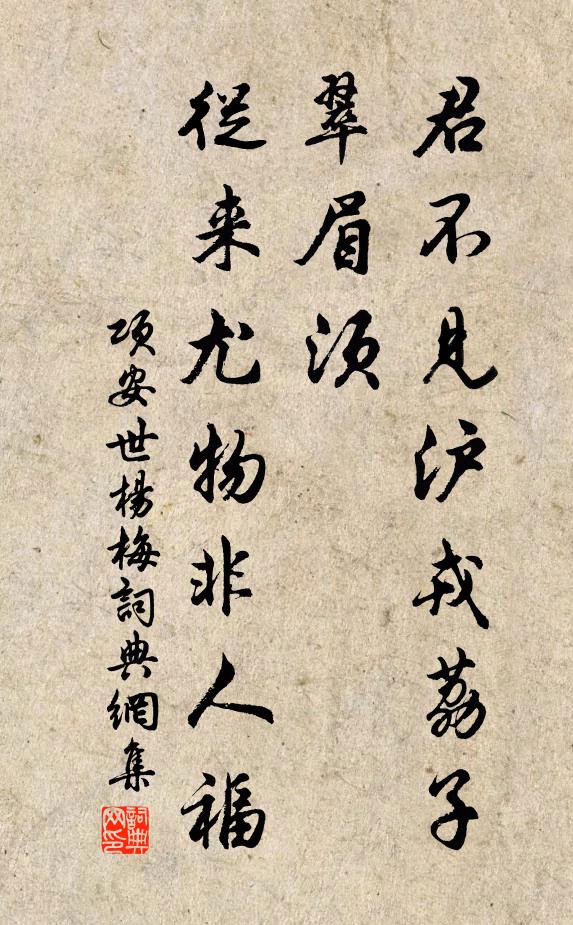 君不見沪戎荔子
翠眉須
從来尤物非人福
項安世楊梅詞典網集
詞典网印